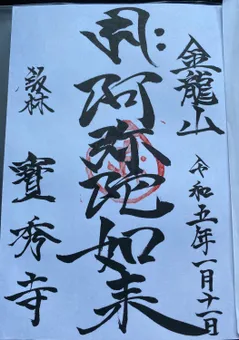 金龍山
令和五年一月十一日
阿弥陀如来
寳秀寺